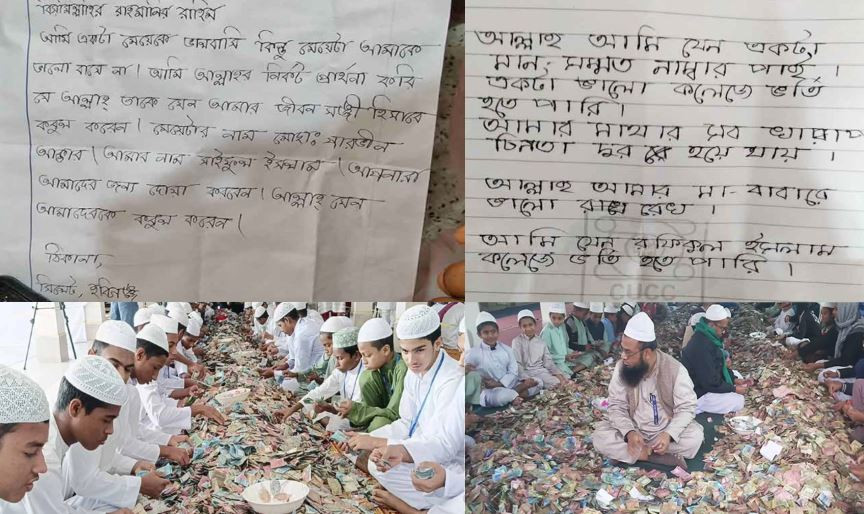 বিসমিল্লাহির রাহমানির রাহিম
আমি একটা মেয়েকে ভালবাসি কিন্তু মেয়েটা আমাকে
ভালো বাসে না। আমি আল্লাহর নিকট প্রার্থনা করি
যে আল্লাহ্ তাকে যেন আমার জীবন সঙ্গী হিসাবে
কবুল করেন। মেয়েটার নাম মোছাঃ শারমীন
আক্তার। আমার নাম সাইফুল ইসলাম। আপনারা
আমাদের জন্য দোয়া করবেন। আল্লাহ্ যেন
আমাদেরকে কবুল করেন।
ঠিকানা,
সিলেট, হবিগঞ্জ
আল্লাহ আমি যেন একটা
মান সম্মত নাম্বার পাই।
একটা ভালো কলেজে ভর্তি
হতে পারি।
আমার মাথার সব খারাপ
চিনতা দুর হয়ে যায়।
আল্লাহ আমার মা-বাবারে
ভালো রেখ।
আমি যেন রফিকুল ইসলাম
কলেজে ভর্তি হতে পারি।
CHCC